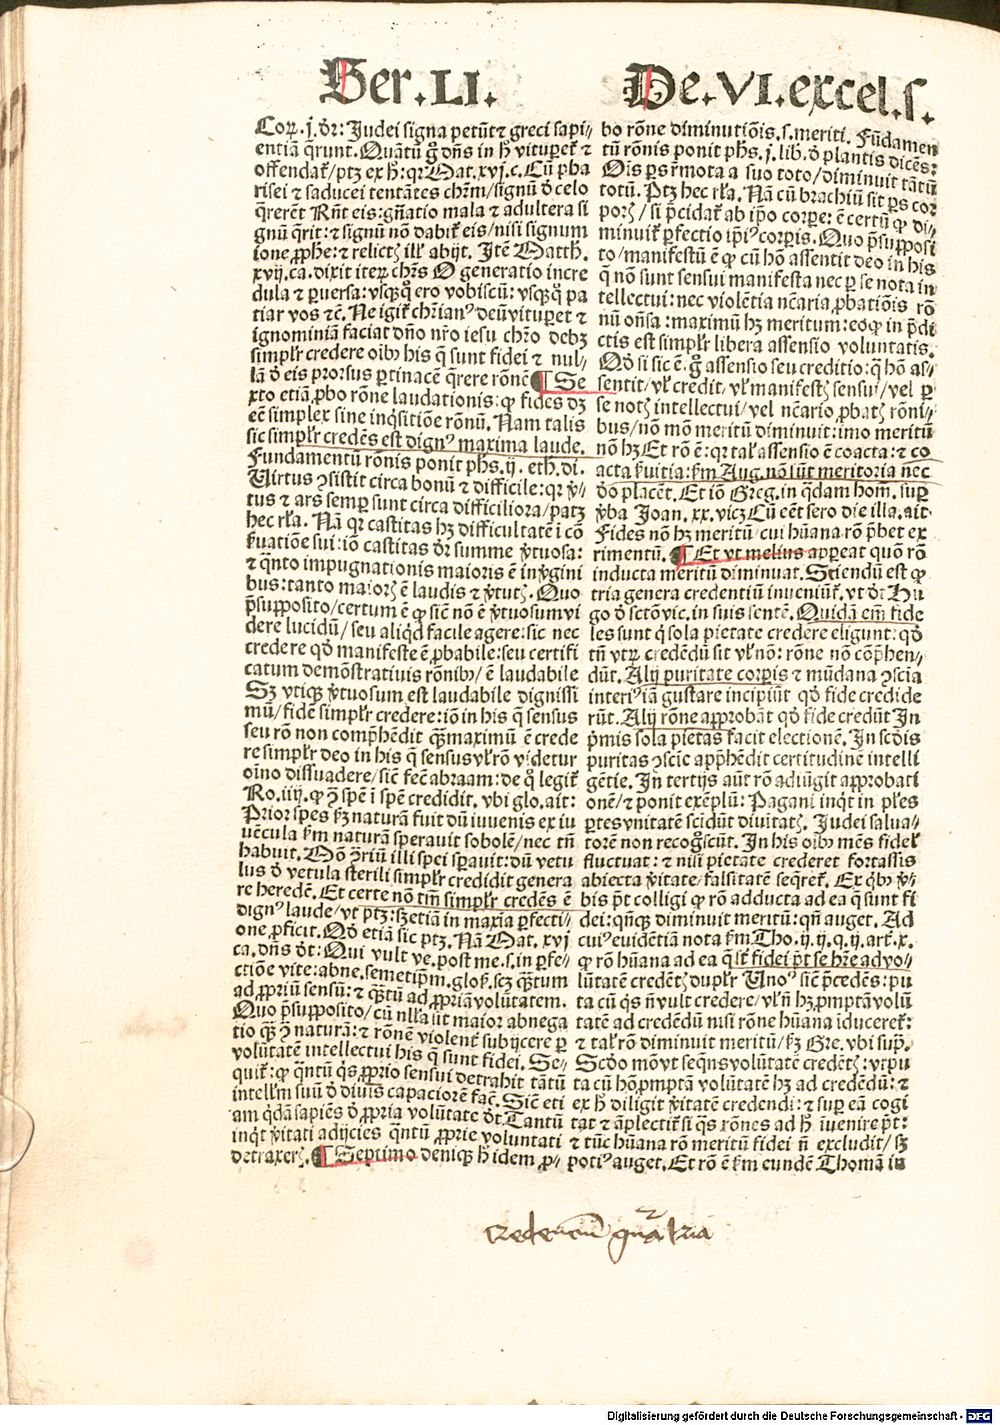 Ser.LI.
De.VI.excel.s.
Coꝝ.j.dr̄: Judei signa petūt ⁊ greci sapi⸗
entiā q̄runt. Quātū g̊ dn̄s in h̄ vituperet̄ ⁊
offendat̄/ptꝫ ex h̄: qr Mat.xvj.c. Cū pha
risei ⁊ saducei tentātes chr̄m/signū d̄ celo
q̄rerēt Rn̄t eis: gn̄atio mala ⁊ adultera si
gnū q̄rit: ⁊ signū nō dabit̄ eis/nisi signum
ione ꝓphe: ⁊ relictꝭ ill̓ abijt. Itē Matth.
xvij.ca. dixit iteꝝ chr̄s O generatio incre
dula ⁊ ꝑuersa: vsq̄q̊ ero vobiscū: vsq̄q̊ pa
tiar vos ⁊c̄. Ne igit̄ chr̄ian⁹ deū vituꝑet ⁊
ignominiā faciat dn̄o nr̄o iesu chr̄o debꝫ
simpl̓r credere oibꝰ his q̄ sunt fidei ⁊ nul⸗
lā d̄ eis prorsus ꝑtinacē q̄rere rōnē ¶ Se
xto etiā ꝓbo rōne laudationis: ꝙ fides dꝫ
eē simplex sine inq̇sitiōe rōnū. Nam talis
sic simpl̓r credēs est dign⁹ maxima laude.
Fundamentū rōnis ponit phs.ij. eth. di.
Virtus ↄsistit circa bonū ⁊ difficile: qr v̓⸗
tus ⁊ ars semꝑ sunt circa difficiliora/patꝫ
hec r̄la. Nā qr castitas hꝫ difficultatē i cō
ẜuatiōe sui: iō castitas dr̄ summe v̓tuosa:
⁊ q̄nto impugnationis maioris ē in v̓gini
bus: tanto maioꝝ ē laudis ⁊ v̓tutꝭ. Quo
p̄supposito/certum ē ꝙ sic̄ nō ē v̓tuosum vi
dere lucidū/ seu aliqd̓ facile agere: sic nec
credere qd̓ manifeste ē ꝓbabile: seu certifi
catum demōstratiuis rōnibꝰ/ ē laudabile
Sꝫ vtiqꝫ v̓tuosum est laudabile dignissi
mū/ fidem simpl̓r credere: iō in his q̄ sensus
seu rō non comp̄hēdit qꝫ maximū ē crede
re simpl̓r deo in his q̄ sensus vl̓ rō videtur
oīno dissuadere/ sic̄ fec̄ abraam: de q̊ legit̄
Ro.iiij. ꝙ ↄ̄ spē ī spē credidit. vbi glo. ait:
Prior spes ẜm naturā fuit dū iuvenis ex iu
uēcula ẜm naturā sperauit sobolē/ nec tn̄
habuit. Mō ↄ̄riū illi spei sꝑauit: dū vetu
lus d̄ vetula sterili simpl̓r credidit genera
re heredē. Et certe nō tm̄ simpl̓r credēs ē
dign⁹ laude/ vt ptꝫ: sꝫ etiā in maxīa ꝑfecti⸗
one ꝓficit. Qd̓ etiā sic ptꝫ. Nā Mat. xvj
ca. dn̄s dt̄: Qui vult ve. post me .s. in ꝑfe⸗
ctiōe vite: abne. semetip̄m. glos. scꝫ q̄tum
ad ꝓpriū sensū: ⁊ q̄tū ad ꝓpriā voluntatem.
Quo p̄supposito/ cū nlla sit maior abnega
tio qꝫ ↄ̄ naturā: ⁊ rōnē violent̄ subijcere ꝑ
volūtatē intellectui his q̄ sunt fidei. Se⸗
quit̄: ꝙ q̄ntū q̇s ꝓprio sensui detrahit tātū
intellm̄ suū d̄ diuis capaciorē fac̄. Sic̄ eti
am q̇dā sapiēs d̄ ꝓpria volūtate dt̄. Tantū
inqt̄ v̓itati adijcies q̄ntū ꝓprie voluntati
detraxeꝭ. ¶ Septimo deniqꝫ h̄ idem ꝓ⸗
bo rōne diminutiōis .s. meriti. Fūdamen
tū rōnis ponit phs. j. lib. d̄ plantis dicēs:
Oīs ꝑs r̄mota a suo toto/ diminuit tātū
totū. Ptꝫ hec r̄la. Nā cū brachiū sit ꝑs cor
porꝭ/ si p̄cidat̄ ab ip̄o corpe: ē certū ꝙ di⸗
minuit̄ ꝑfectio ip̄i⁹ corpis. Quo p̄supposi
to/ manifestū ē ꝙ cū hō assentit deo in his
q̄ nō sunt sensui manifesta nec ꝑ se nota in
tellectui: nec violētia nc̄aria ꝓbatiōis rō
nū on̄sa: maximū hꝫ meritum: eo ꝙ in p̄di
ctis est simpl̓r libera assensio voluntatis.
Qd̓ si sic ē. g̊ assensio seu creditio: q̄ hō as⸗
sentit/ vl̓ credit/ vl̓ manifestꝭ sensui/ vel ꝑ
se notꝭ intellectui/ vel nc̄ario ꝓbatꝭ rōni⸗
bus/ nō mō meritū diminuit: imo meritū
nō hꝫ Et rō ē: qr tal̓ assensio ē coacta: ⁊ co
acta ẜuitia: ẜm Aug. nō sūt meritoria nec
dō placēt. Et iō Greg. in q̇dam hom̄. suꝑ
v̓ba Joan. xx. vicꝫ Cū eēt sero die illa. ait
Fides nō hꝫ meritū/ cui hūana rō p̄bet ex
ꝑimentū. ¶ Et vt melius appeat quō rō
inducta meritū diminuat. Sciendū est ꝙ
tria genera credentiū inueniūt̄. vt dt̄ Hu
go d̄ sctōvic. in suis sentē. Quidā em̄ fide
les sunt q̇ sola pietate credere eligunt: qd̓
tn̄ vtꝝ credēdū sit vl̓ nō: rōne nō cōp̄hen⸗
dūt. Alij puritate corpis ⁊ mūdana ↄscia
interi⁹ iā gustare incipiūt qd̓ fide credide
rūt. Alij rōne approbāt qd̓ fide credūt In
p̄mis sola pietas facit electionē. In scd̓is
puritas ↄscie app̄hēdit certitudinē intelli
gētie. In tertijs aūt rō adiūgit approbati
onē/ ⁊ ponit exēplū: Pagani inqt̄ in pl̓es
ꝑtes vnitatē scīdūt diuitatꝭ. Judei salua⸗
torē non recog̊scūt. In his oibꝰ mēs fidel̓
fluctuat: ⁊ nisi pietate crederet fortassis
abiecta v̓itate/ falsitatē seq̄ret̄. Ex q̇bꝰ v̓⸗
bis pt̄ colligi ꝙ rō adducta ad ea q̄ sunt fi
dei: qn̄qꝫ diminuit meritū: qn̄ auget. Ad
cui⁹ euidētiā nota ẜm Tho. ij. ij. q. ij. art̄. x.
ꝙ rō hūana ad ea q̄ st̄ fidei pt̄ se hr̄e ad vo⸗
lūtatē credētꝭ dupl̓r Vno⁹ sic̄ p̄cedēs: pu
ta cū q̇s n̄ vult credere/ vl̓ n̄ hꝫ ꝓmptā volū
tatē ad credēdū nisi rōne hūana īduceret̄:
⁊ tal̓ rō diminuit meritū/ ẜꝫ Gre. vbi supᷓ.
Scd̓o mō vt seq̄ns volūtatē credētꝭ: vtpu
ta cū hō ꝓmptā volūtatē hꝫ ad credēdū: ⁊
ex h̄ diligit v̓itatē credendi: ⁊ suꝑ eā cogi
tat ⁊ āplectit̄ si q̄s rōnes ad h̄ īuenire pt̄:
⁊ tūc hūana rō meritū fidei n̄ excludit/ sꝫ
poti⁹ auget. Et rō ē ẜm eundē Thomā in
Digitalisierung gefördert durch die Deutsche Forschungsgemeinschaft - DFG